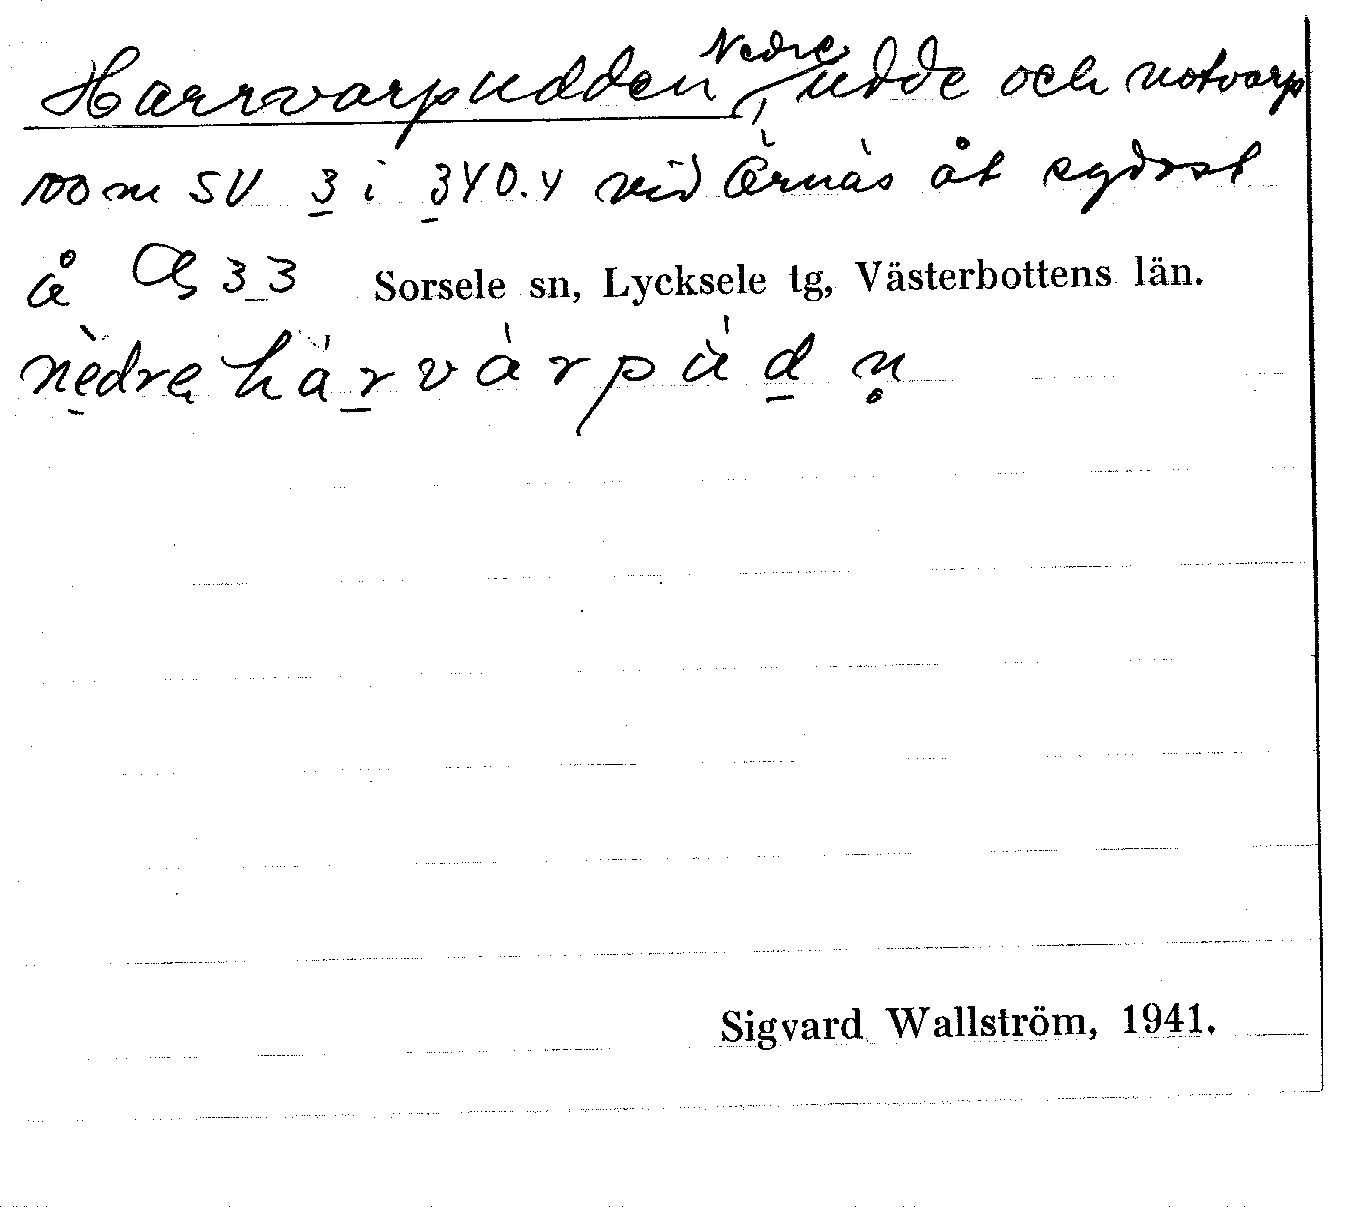 Harrvarpudden, Nedre udde och notvarp
100 m SV 3 i 340.4 vid Örnäs åt sydost
å Cg 33 Sorsele sn, Lycksele tg, Västerbottens län.
nèdre hàrvárpùdn̥
Sigvard Wallström, 1941.